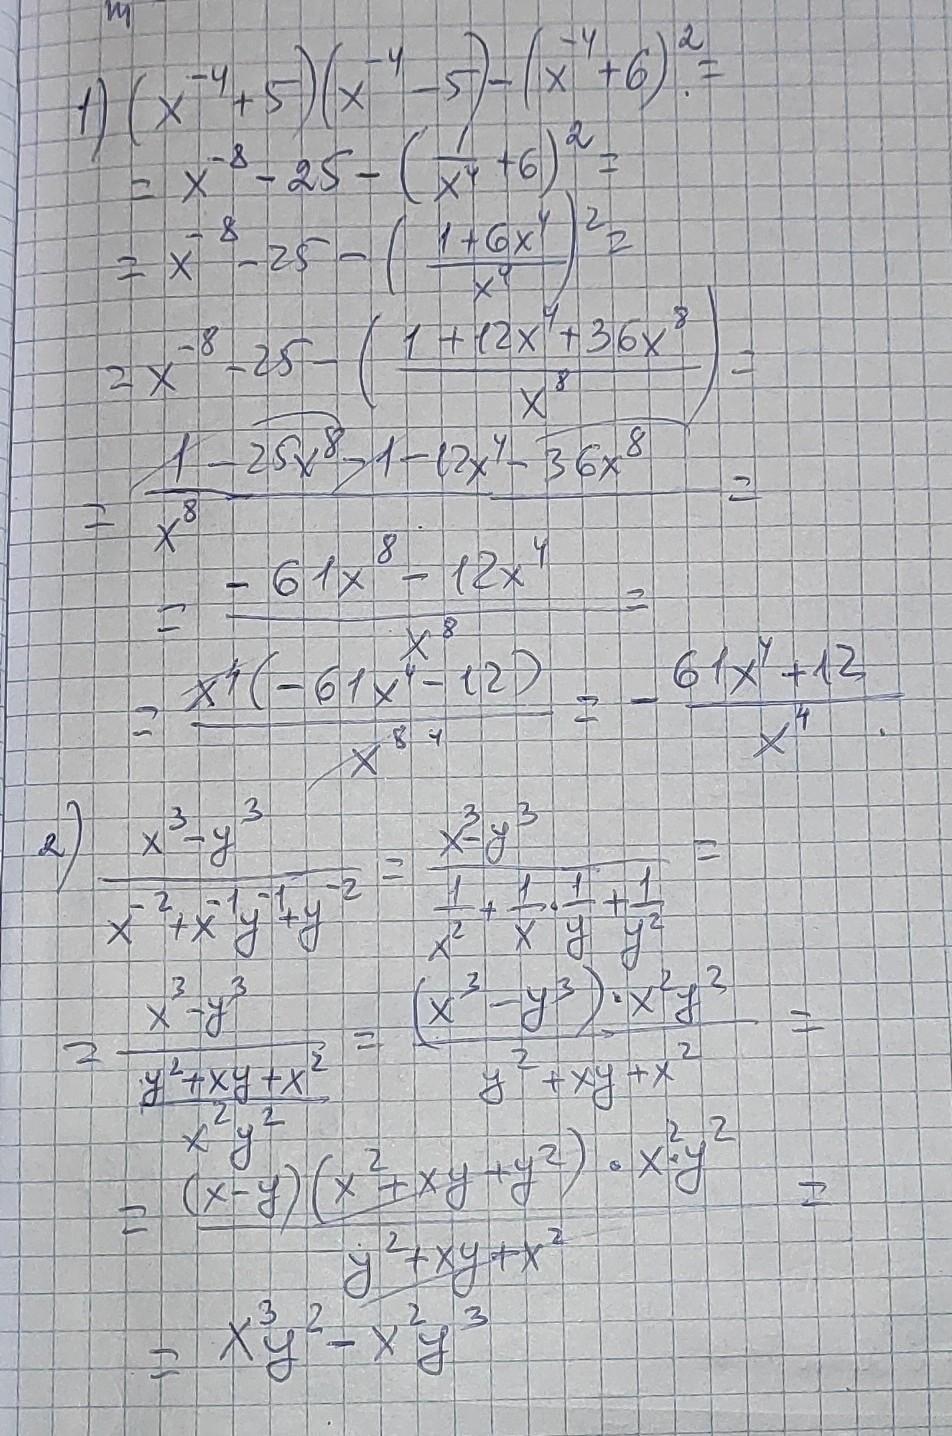 1) (x⁻⁴+5)(x⁻⁴-5)-(x⁻⁴+6)²=
= x⁻⁸-25-(1/x⁴+6)²=
= x⁻⁸-25-((1+6x⁴)/x⁴)²=
= x⁻⁸-25-((1+12x⁴+36x⁸)/x⁸)=
= (1-25x⁸-1-12x⁴-36x⁸)/x⁸ =
= (-61x⁸-12x⁴)/x⁸ =
= x⁴(-61x⁴-12)/x⁸ ⁴ = - (61x⁴+12)/x⁴.
2) (x³-y³)/(x⁻²+x⁻¹y⁻¹+y⁻²) = (x³-y³)/(1/x²+1/x·1/y+1/y²) =
= (x³-y³)/((y²+xy+x²)/(x²y²)) = ((x³-y³)·x²y²)/(y²+xy+x²) =
= ((x-y)(x²+xy+y²)·x²·y²)/(y²+xy+x²) =
= x³y²-x²y³